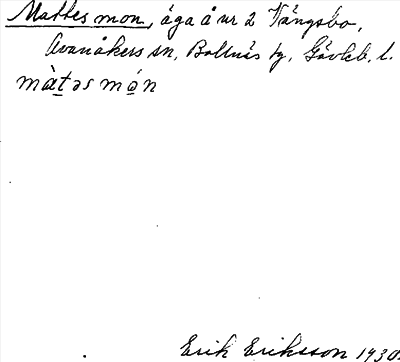 Mattes mon, äga å nr 2 Vängsbo,
Avanåkers sn, Bollnäs tg, Gävleb. l.
màtəs mǿn
Erik Eriksson 1930.